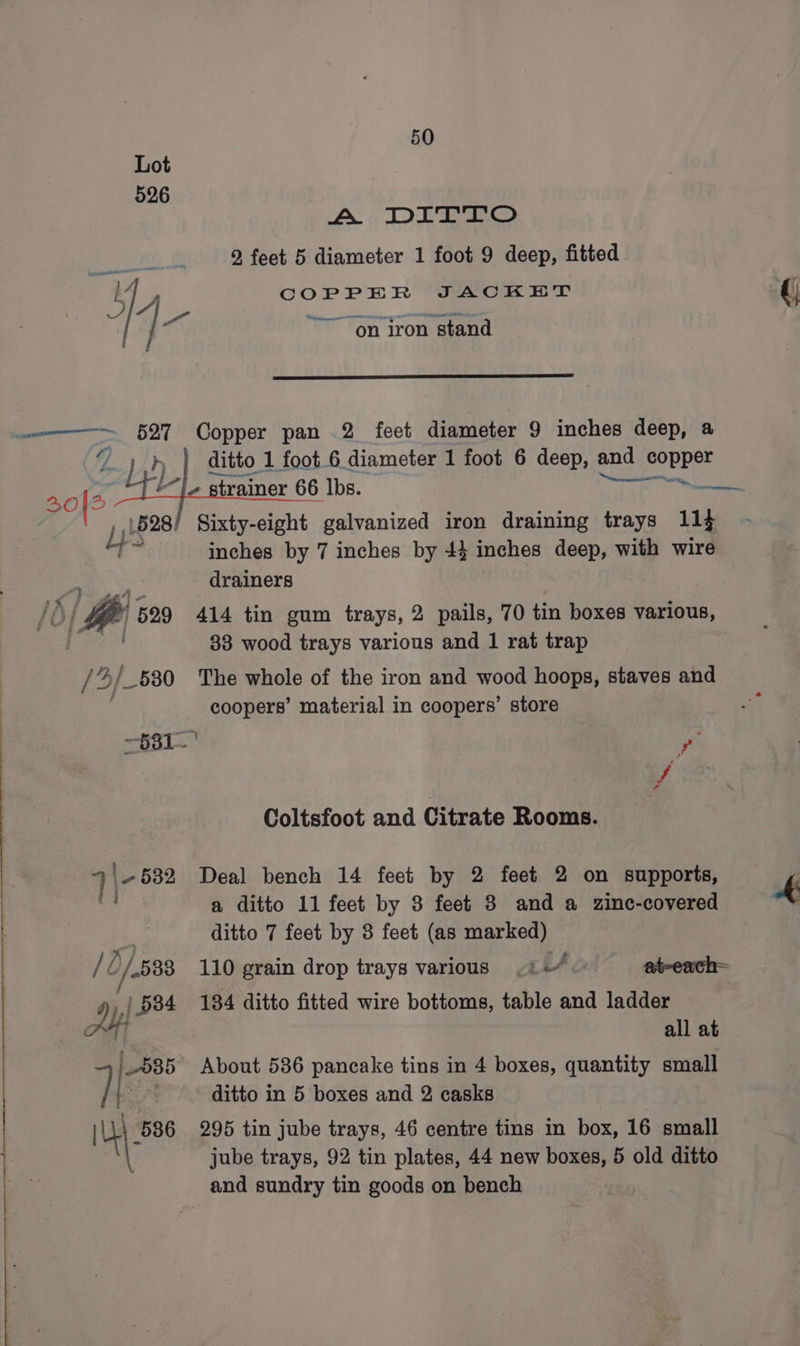 50
Lot
526
A DITTO
2 feet 5 diameter 1 foot 9 deep, fitted
COPPER JACKET
on iron stand
527 Copper pan 2 feet diameter 9 inches deep, a
ditto 1 foot 6 diameter 1 foot 6 deep, and copper
strainer 66 lbs.
30/3
528 Sixty-eight galvanized iron draining trays 11½
inches by 7 inches by 4½ inches deep, with wire
drainers
529 414 tin gum trays, 2 pails, 70 tin boxes various,
33 wood trays various and 1 rat trap
530 The whole of the iron and wood hoops, staves and
coopers’ material in coopers’ store
531
Coltsfoot and Citrate Rooms.
532 Deal bench 14 feet by 2 feet 2 on supports,
a ditto 11 feet by 3 feet 3 and a zinc-covered
ditto 7 feet by 3 feet (as marked)
10/ 533 110 grain drop trays various at each
534 134 ditto fitted wire bottoms, table and ladder
all at
535 About 536 pancake tins in 4 boxes, quantity small
ditto in 5 boxes and 2 casks
536 295 tin jube trays, 46 centre tins in box, 16 small
jube trays, 92 tin plates, 44 new boxes, 5 old ditto
and sundry tin goods on bench